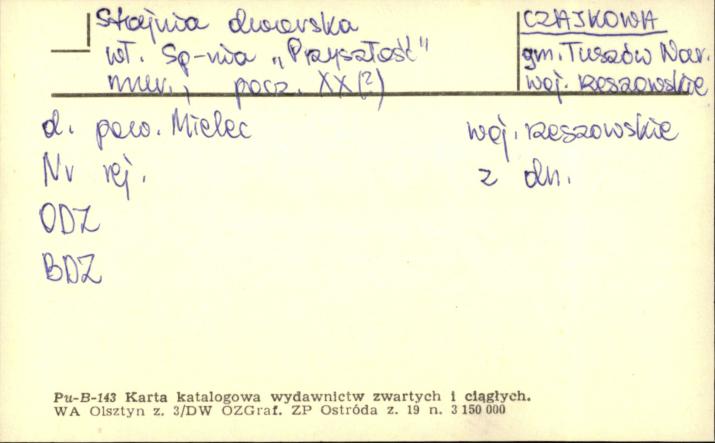 Stajnia dworska
wł. Sp-nia „Przyszłość"
mur., pocz. XX(?)
CZAJKOWA
gm. Tuszów Nar.
woj. rzeszowskie
d. pow. Mielec woj. rzeszowskie
Nr rej. z dn.
ODZ
BDZ
Pu-B-143 Karta katalogowa wydawnictw zwartych i ciągłych.
WA Olsztyn z. 3/DW OZGraf. ZP Ostróda z. 19 n. 3 150 000